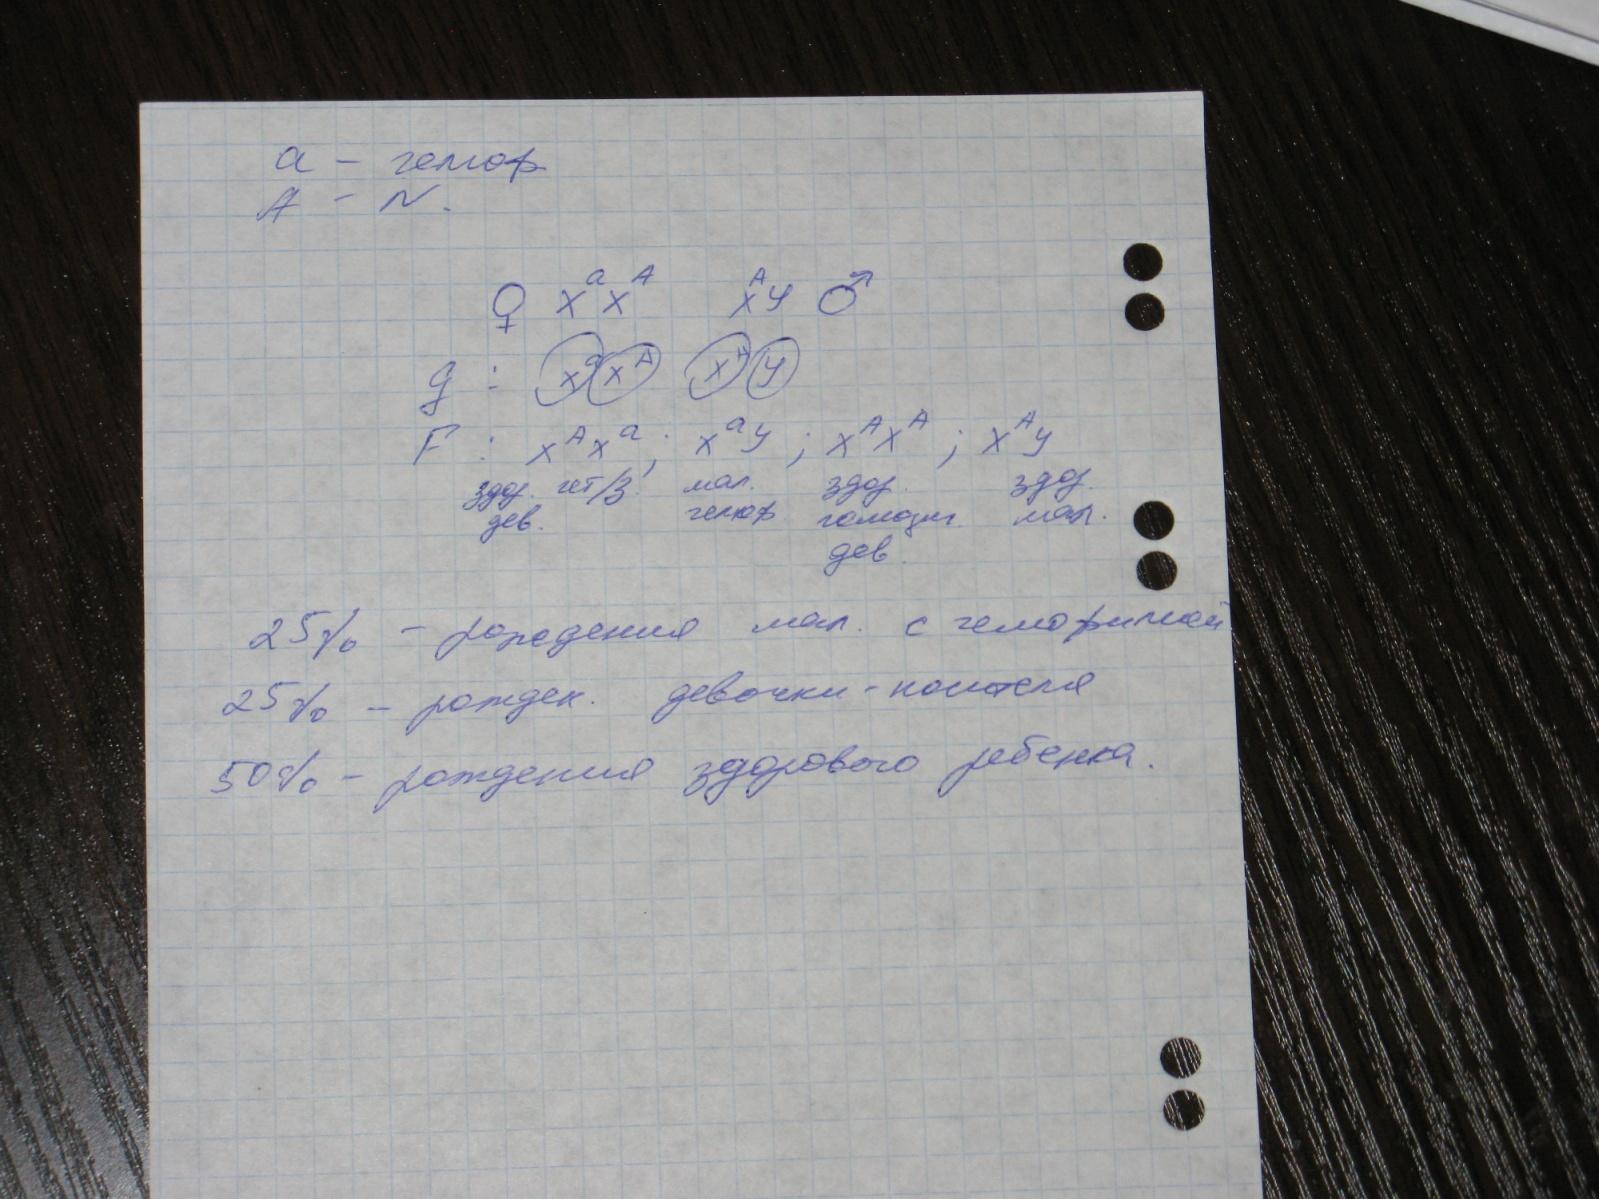 a - гемоф
A - N.
♀ XᵃXᴬ XᴬY ♂
g : Xᵃ Xᴬ Xᴬ Y
F : XᴬXᵃ; XᵃY; XᴬXᴬ; XᴬY
здор. гет/з. мал. здор. здор.
дев. гемоф гомозиг. мал.
дев.
25% - рождения мал. с гемофилией
25% - рожден. девочки-носителя
50% - рождения здорового ребенка.